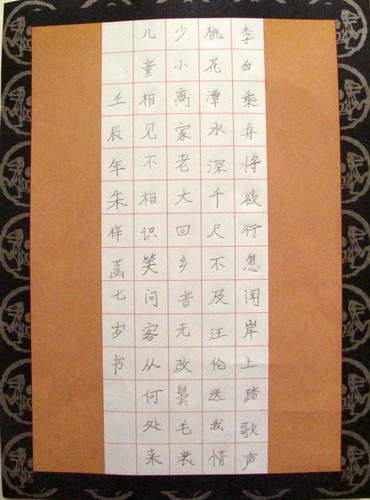 李白乘舟将欲行忽闻岸上踏歌声
桃花潭水深千尺不及汪伦送我情
少小离家老大回乡音无改鬓毛衰
儿童相见不相识笑问客从何处来
壬辰年朱梓菡七岁书